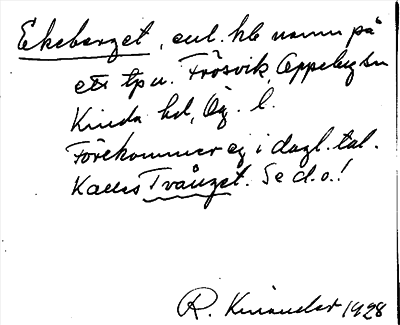 Ekeberget, enl. hb namn på
ett tp u. Frösvik, Oppeby sn
Kinda hd, Ög. l.
Förekommer ej i dagl. tal.
Kallas Tvånget. Se d.o.!
R. Kinander 1928